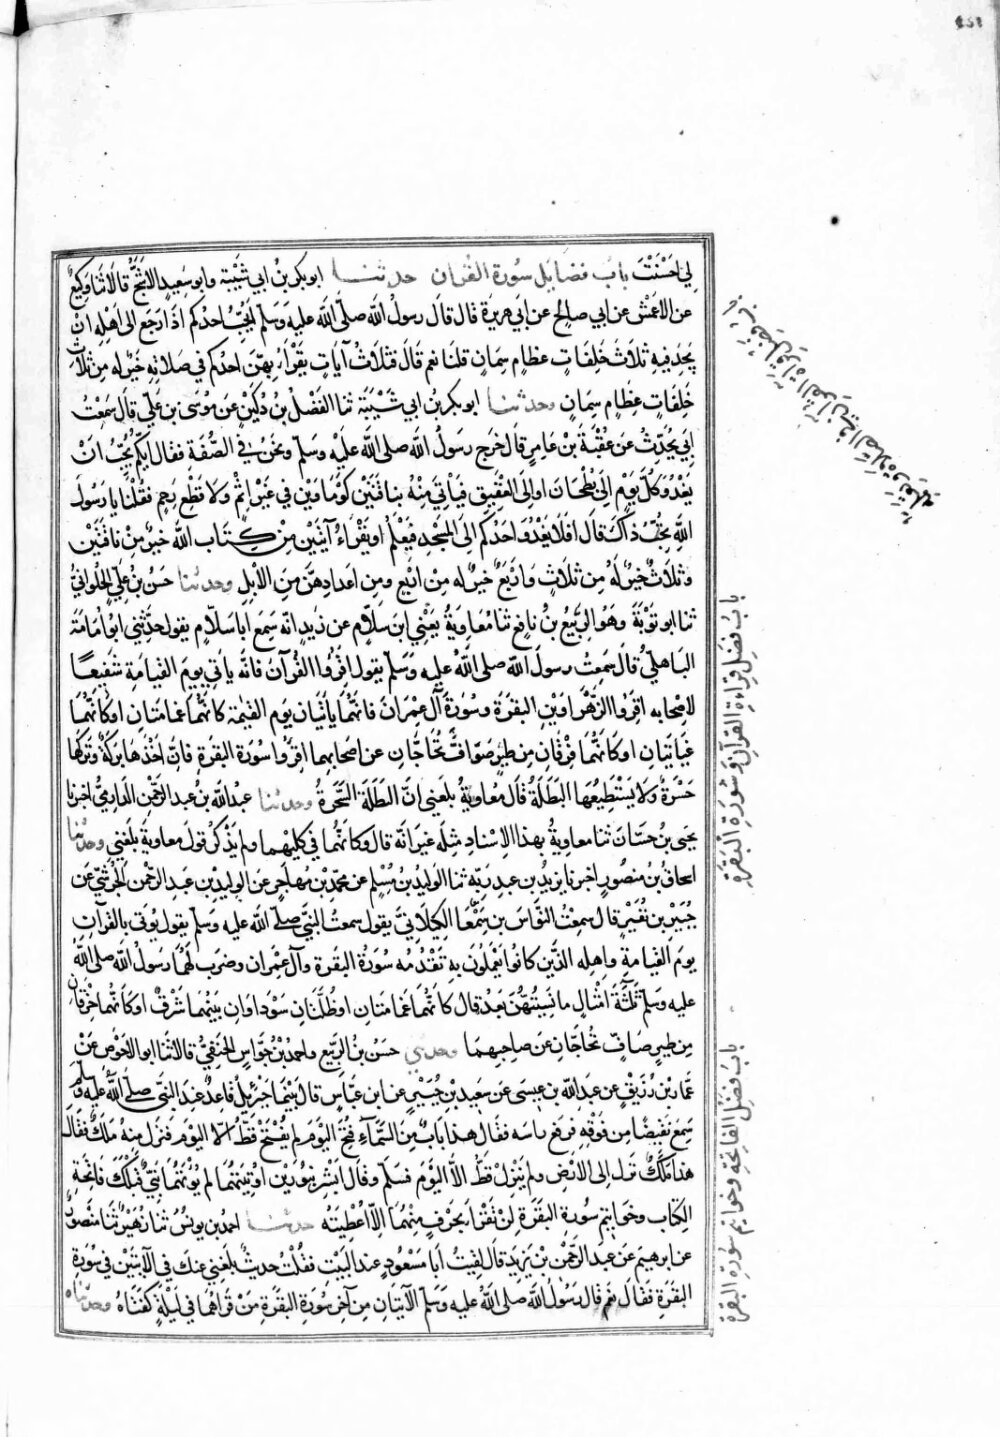 لي احسنت باب فضايل سورة القران حدثنا ابو بكر بن ابي شيبة وابو سعيد الاشج قالا ثنا وكيع
عن الاعمش عن ابي صالح عن ابي هريرة قال قال رسول الله صلى الله عليه وسلم ايحب احدكم اذا رجع الى اهله ان
يجد فيه ثلاث خلفات عظام سمان قلنا نعم قال فثلاث آيات يقراء بهن احدكم في صلاته خير له من ثلاث
خلفات عظام سمان وحدثنا ابو بكر بن ابي شيبة ثنا الفضل بن دكين عن موسى بن علي قال سمعت
ابي يحدث عن عقبة بن عامر قال خرج رسول الله صلى الله عليه وسلم ونحن في الصفة فقال ايكم يحب ان
يغدو كل يوم الى بطحان او الى العقيق فياتي منه بناقتين كوماوين في غير اثم ولا قطع رحم فقلنا يا رسول
الله نحب ذاك قال افلا يغدو احدكم الى المسجد فيعلم او يقراء آيتين من كتاب الله خير من ناقتين
وثلاث خير له من ثلاث واربع خير له من اربع ومن اعدادهن من الابل وحدثنا حسن بن علي الحلواني
ثنا ابو توبة وهو الربيع بن نافع ثنا معاوية يعني ابن سلام عن زيد انه سمع ابا سلام يقول حدثني ابو امامة
الباهلي قال سمعت رسول الله صلى الله عليه وسلم يقول اقروا القرآن فانه ياتي يوم القيامة شفيعا
لاصحابه اقروا الزهراوين البقرة وسورة آل عمران فانهما يأتيان يوم القيمة كانهما غمامتان او كانهما
غيايتان او كانهما فرقان من طير صواف تحاجان عن اصحابهما اقروا سورة البقرة فان اخذها بركة وتركها
حسرة ولا يستطيعها البطلة قال معاوية بلغني ان البطلة السحرة وحدثنا عبد الله بن عبد الرحمن الدارمي اخبرنا
يحيى بن حسان ثنا معاوية بهذا الاسناد مثله غير انه قال وكانهما في كليهما ولم يذكر قول معاوية بلغني وحدثنا
اسحاق بن منصور اخبرنا يزيد بن عبد ربه ثنا الوليد بن مسلم عن محمد بن مهاجر عن الوليد بن عبد الرحمن الجرشي عن
جبير بن نفير قال سمعت النواس بن سمعا الكلابي يقول سمعت النبي صلى الله عليه وسلم يقول يؤتى بالقرآن
يوم القيامة واهله الذين كانوا يعملون به تقدمه سورة البقرة وآل عمران وضرب لهما رسول الله صلى الله
عليه وسلم ثلثة امثال ما نسيتهن بعد قال كانهما غمامتان او ظلتان سوداوان بينهما شرق او كانهما حزقان
من طير صاف تحاجان عن صاحبهما وحدثني حسن بن الربيع واحمد بن جواس الحنفي قالا ثنا ابو الاحوص عن
عمار بن رزيق عن عبد الله بن عيسى عن سعيد بن جبير عن ابن عباس قال بينما جبرئيل قاعد عند النبي صلى الله عليه وسلم
سمع نقيضا من فوقه فرفع راسه فقال هذا باب من السمآء فتح اليوم لم يفتح قط الا اليوم فنزل منه ملك فقال
هذا ملك نزل الى الارض ولم ينزل قط الا اليوم فسلم وقال ابشر بنورين اوتيتهما لم يؤتهما نبي قبلك فاتحة
الكتاب وخواتيم سورة البقرة لن تقرا بحرف منهما الا اعطيته حدثنا احمد بن يونس ثنا زهير ثنا منصور
عن ابراهيم عن عبد الرحمن بن يزيد قال لقيت أبا مسعود عند البيت فقلت حديث بلغني عنك في الآيتين في سورة
البقرة فقال نعم قال رسول الله صلى الله عليه وسلم الآيتان من آخر سورة البقرة من قراهما في ليلة كفتاه وحدثناه
باب فضل قراءة القرآن وسورة البقرة
باب فضل الفاتحة وخواتيم سورة البقرة